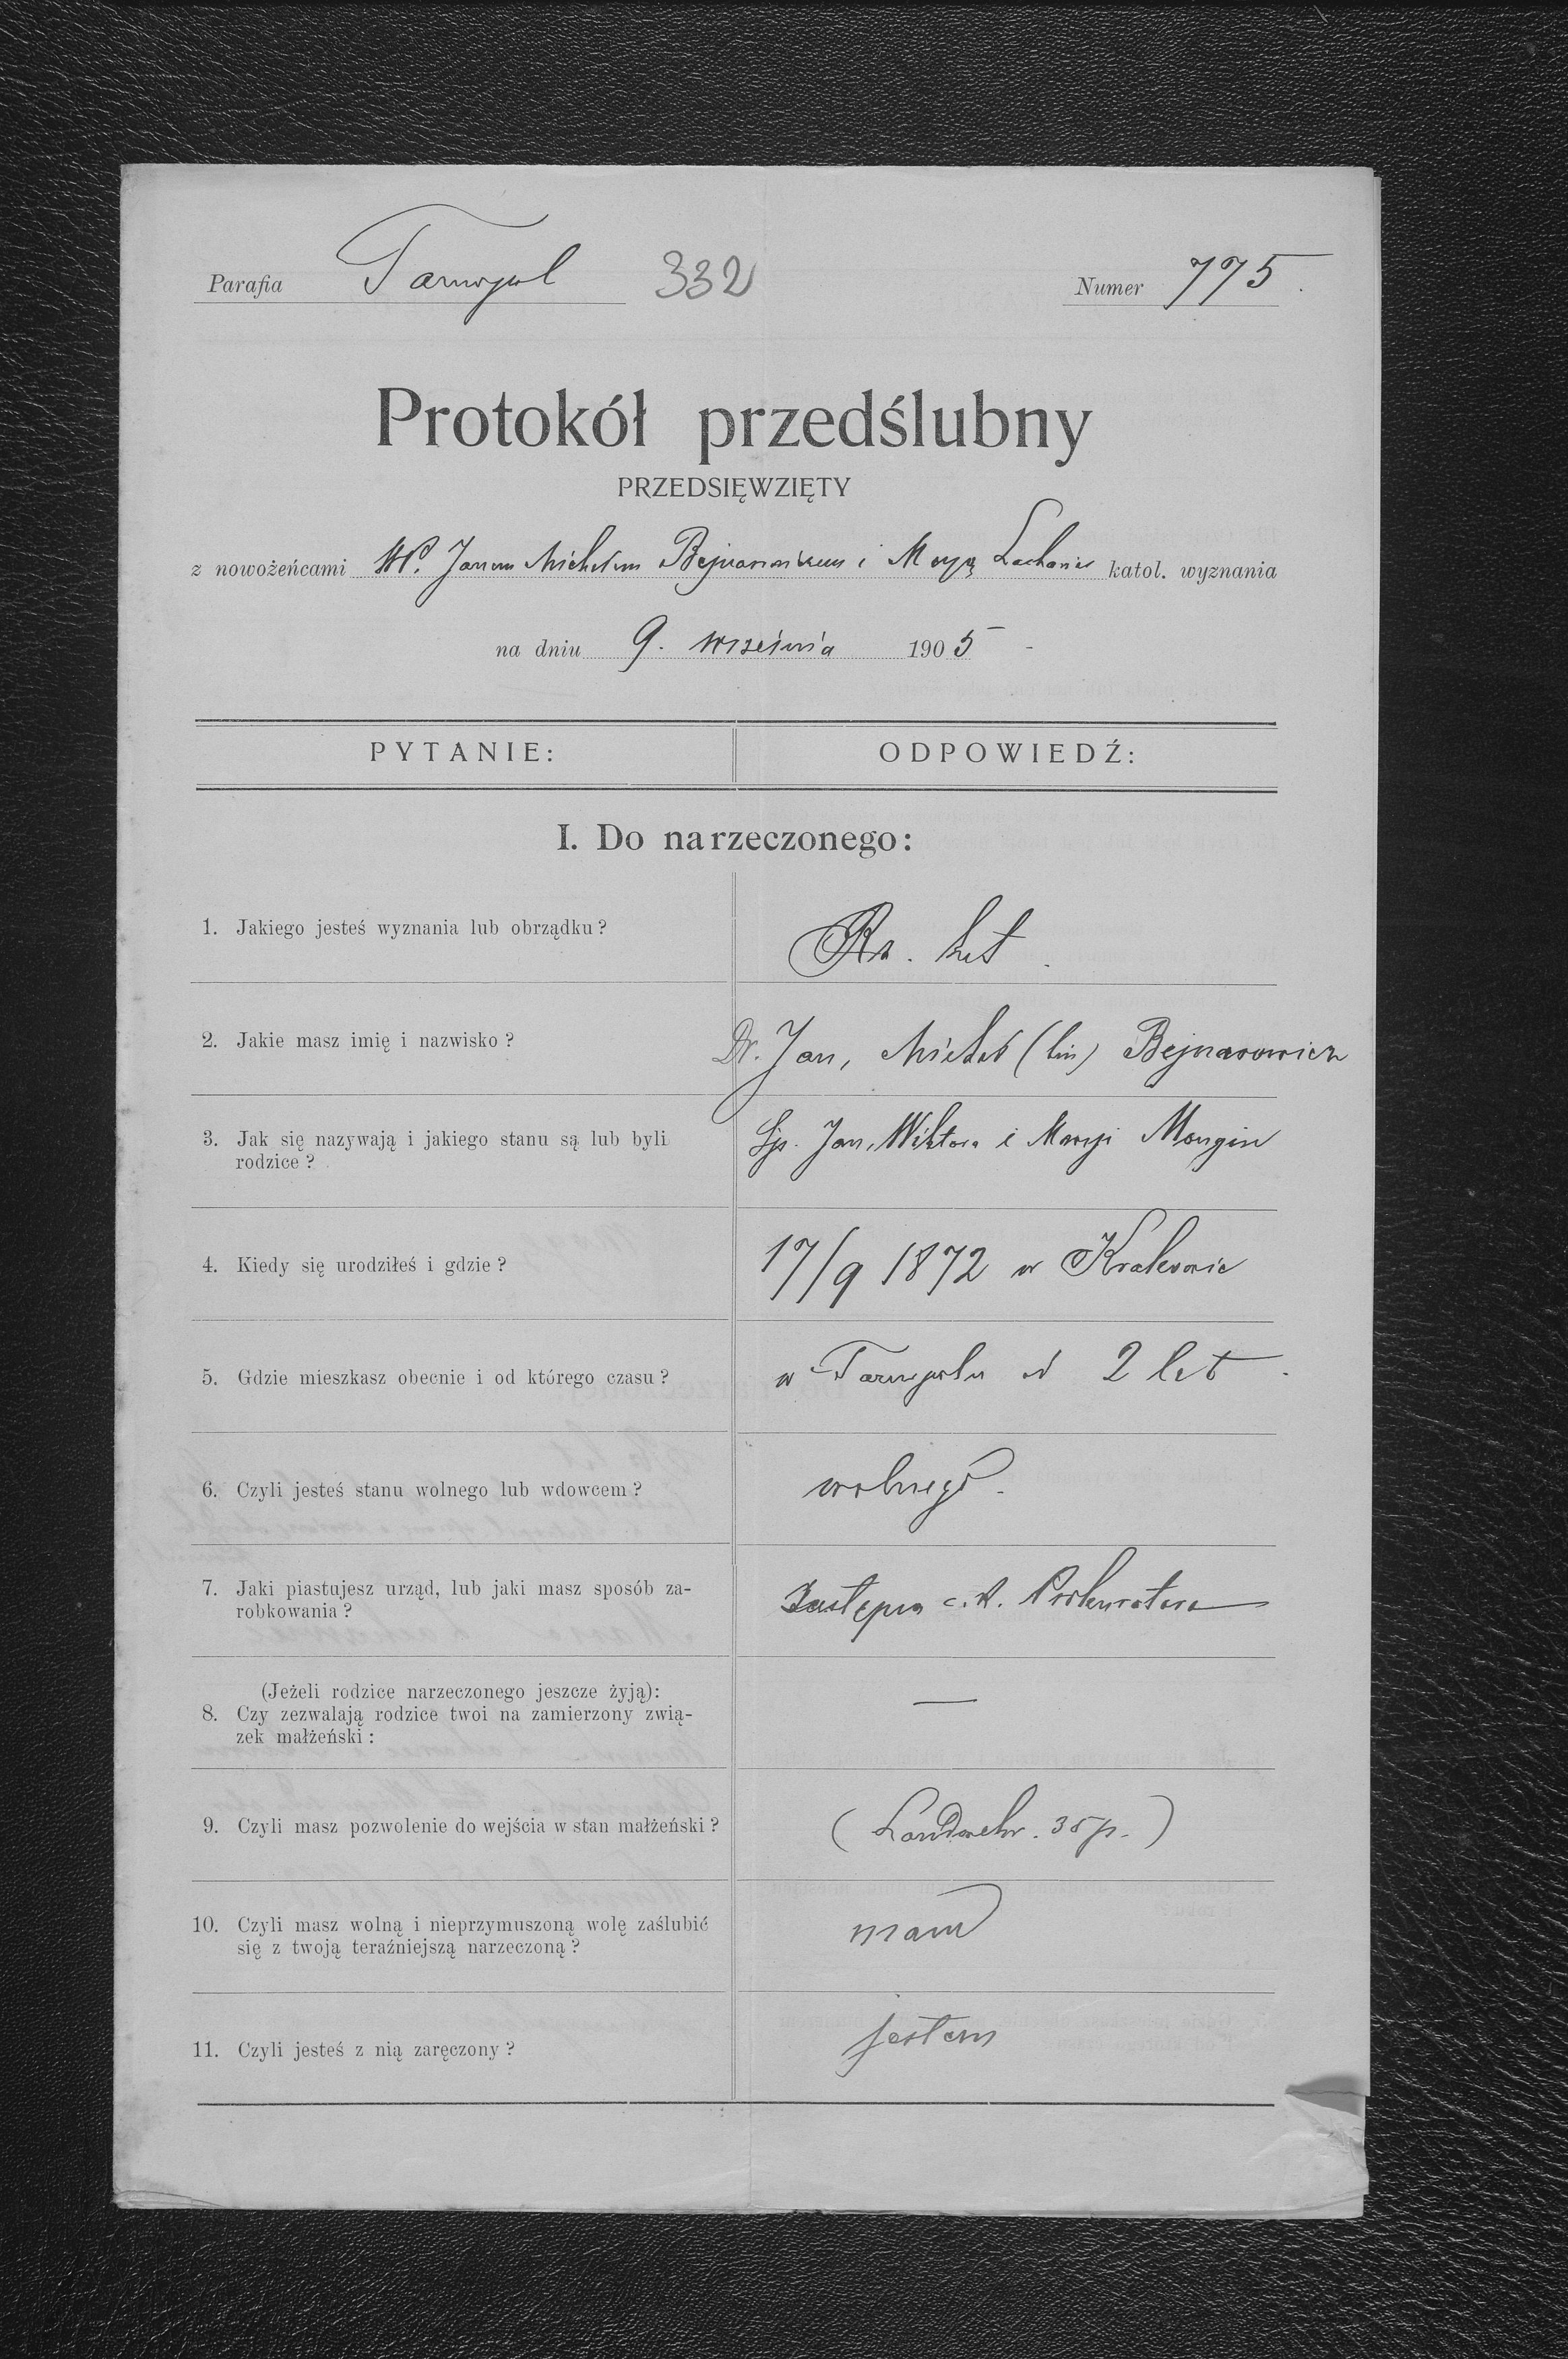 Parafia Tarnopol 332 Numer 775.
Protokół przedślubny
PRZEDSIĘWZIĘTY
z nowożeńcami WP. Janem Michałem Bejnarowiczem i Maryą Lachowicz katol. wyznania
na dniu 9. września 1905
PYTANIE: ODPOWIEDŹ:
I. Do narzeczonego:
1. Jakiego jesteś wyznania lub obrządku? Rz. łat.
2. Jakie masz imię i nazwisko? Dr. Jan, Michał (bin) Bejnarowicz
3. Jak się nazywają i jakiego stanu są lub byli Śp. Jan, Wiktora i Maryi Mongin
rodzice?
4. Kiedy się urodziłeś i gdzie? 17/9 1872 w Krakowie
5. Gdzie mieszkasz obecnie i od którego czasu? w Tarnopolu od 2 lat.
6. Czyli jesteś stanu wolnego lub wdowcem? wolnego.
7. Jaki piastujesz urząd, lub jaki masz sposób za- Zastępca c. k. Prokuratora
robkowania?
(Jeżeli rodzice narzeczonego jeszcze żyją):
8. Czy zezwalają rodzice twoi na zamierzony zwią- —
zek małżeński:
9. Czyli masz pozwolenie do wejścia w stan małżeński? (Landwehr. 35 p.)
10. Czyli masz wolną i nieprzymuszoną wolę zaślubić mam
się z twoją teraźniejszą narzeczoną?
11. Czyli jesteś z nią zaręczony? jestem